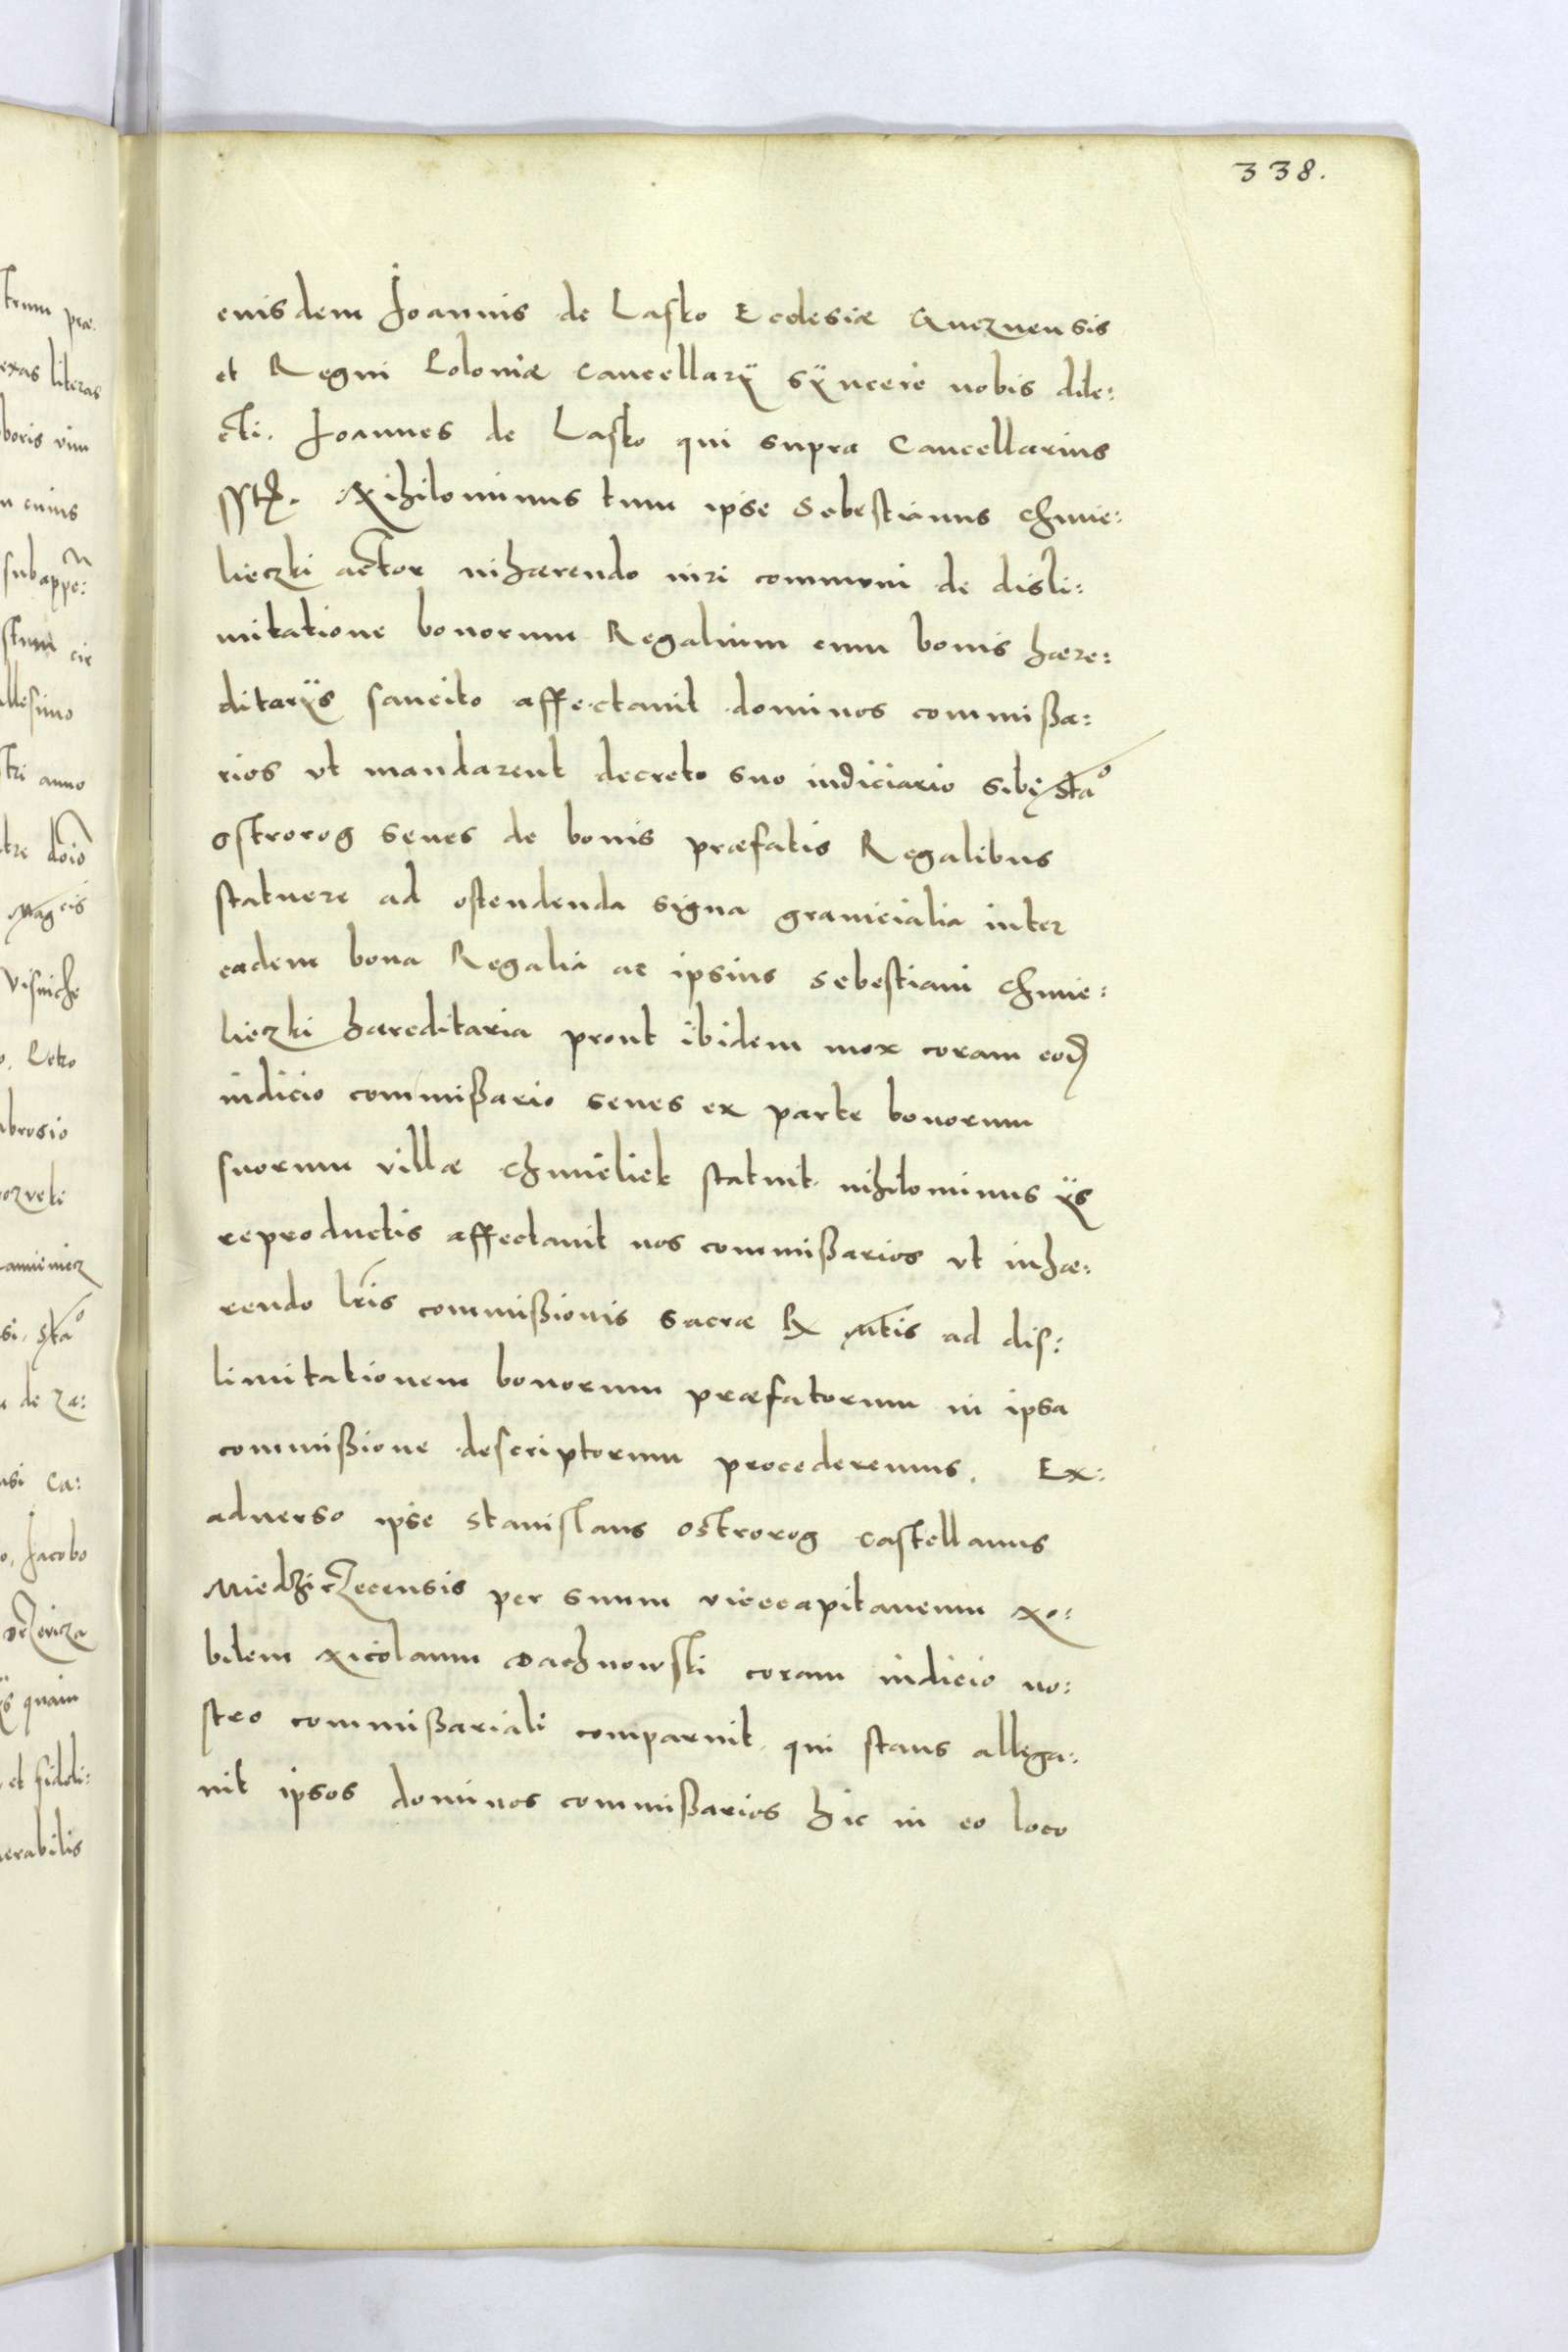 338.
euisdem Joannis de Lasko Ecclesiæ Gneznensis
et Regni Poloniæ Cancellarÿ sÿncere nobis dile:
cti. Joannes de Lasko qui supra Cancellarius
Nihilominus tum ipse Sebestianus Chmie:
lieczki actor inhærendo iuri communi de disli:
mitatione bonorum Regalium cum bonis hære:
ditarÿs sancito affectauit dominos commißa:
rios vt mandarent decreto suo iudiciario sibi Stao
Ostrorog senes de bonis præfatis Regalibus
statuere ad ostendenda signa granicialia inter
eadem bona Regalia ac ipsius Sebestiani Chmie:
lieczki hæreditaria prout ibidem mox coram eod
iudicio commißario senes ex parte bonorum
suorum villæ Chmieliek statuit. nihilominus ÿs
reproductis affectauit nos commißarios vt inhæ:
rendo lris commißionis Sacræ R Mtis ad dis:
limitationem bonorum præfatorum in ipsa
commißione descriptorum procederemus. Ex:
aduerso ipse Stanislaus Ostrorog Castellanus
Miedzirzecensis per suum vicecapitaneum No:
bilem Nicolaum Dachnowski coram iudicio no:
stro commißariali comparuit. qui stans allega:
uit ipsos dominos commißarios hic in eo loco
trum præ.
exas literas
boris vim
cuius
sub appe:
stum cir
llesimo
tri anno
doio
Magcis
Visniche
Petro
mbrosio
Stao
de Za:
Ca:
Jacobo
quam
et fideli:
nerabilis